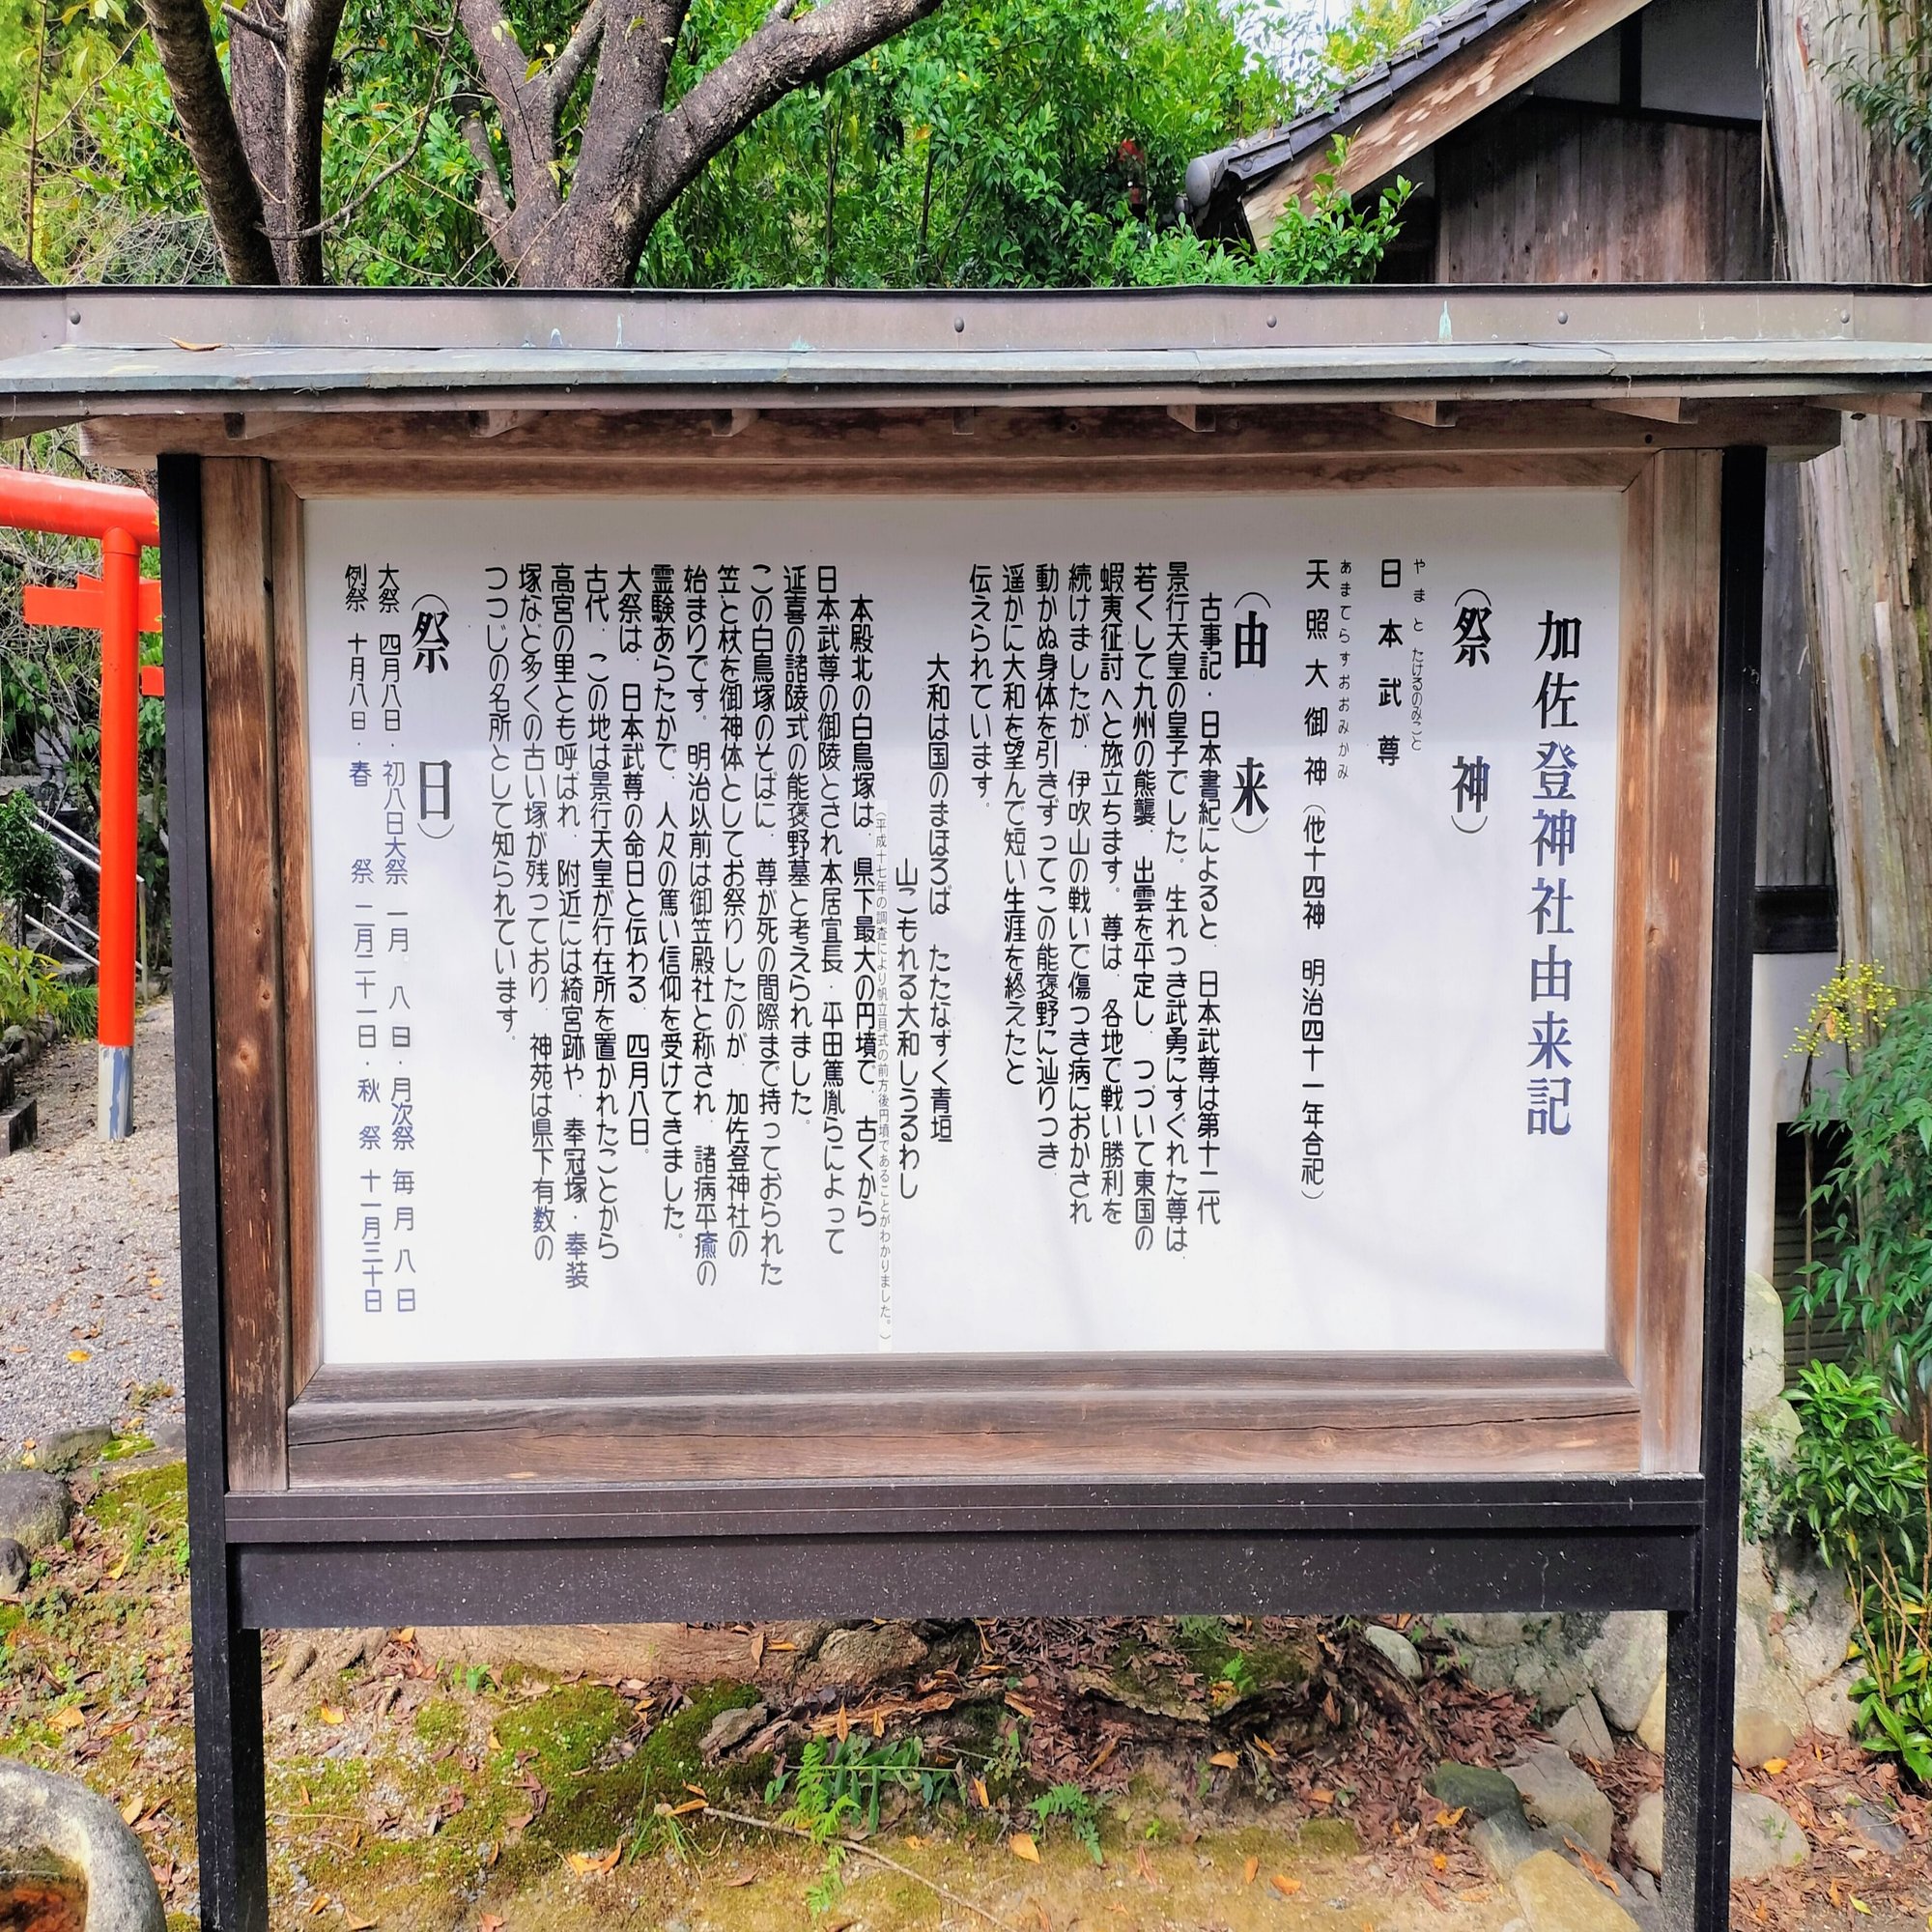 加佐登神社由来記
（祭神）
やまとたけるのみこと
日本武尊
あまてらすおおみかみ
天照大御神（他十四神　明治四十一年合祀）
（由来）
古事記・日本書紀によると、日本武尊は第十二代
景行天皇の皇子でした。生れつき武勇にすぐれた尊は、
若くして九州の熊襲、出雲を平定し、つづいて東国の
蝦夷征討へと旅立ちます。尊は、各地で戦い勝利を
続けましたが、伊吹山の戦いで傷つき病におかされ
動かぬ身体を引きずってこの能褒野に辿りつき、
遥かに大和を望んで短い生涯を終えたと
伝えられています。
大和は国のまほろば　たたなずく青垣
山こもれる大和しうるわし
（平成十七年の調査により帆立貝式の前方後円墳であることがわかりました。）
本殿北の白鳥塚は、県下最大の円墳で、古くから
日本武尊の御陵とされ本居宣長・平田篤胤らによって
延喜の諸陵式の能褒野墓と考えられました。
この白鳥塚のそばに、尊が死の間際まで持っておられた
笠と杖を御神体としてお祭りしたのが、加佐登神社の
始まりです。明治以前は御笠殿社と称され、諸病平癒の
霊験あらたかで、人々の篤い信仰を受けてきました。
大祭は、日本武尊の命日と伝わる、四月八日。
古代、この地は景行天皇が行在所を置かれたことから
高宮の里とも呼ばれ、附近には綺宮跡や、奉冠塚・奉装
塚など多くの古い塚が残っており、神苑は県下有数の
つつじの名所として知られています。
（祭日）
大祭　四月八日・初八日大祭　一月八日・月次祭　毎月八日
例祭　十月八日・春祭　二月二十一日・秋祭　十一月三十日